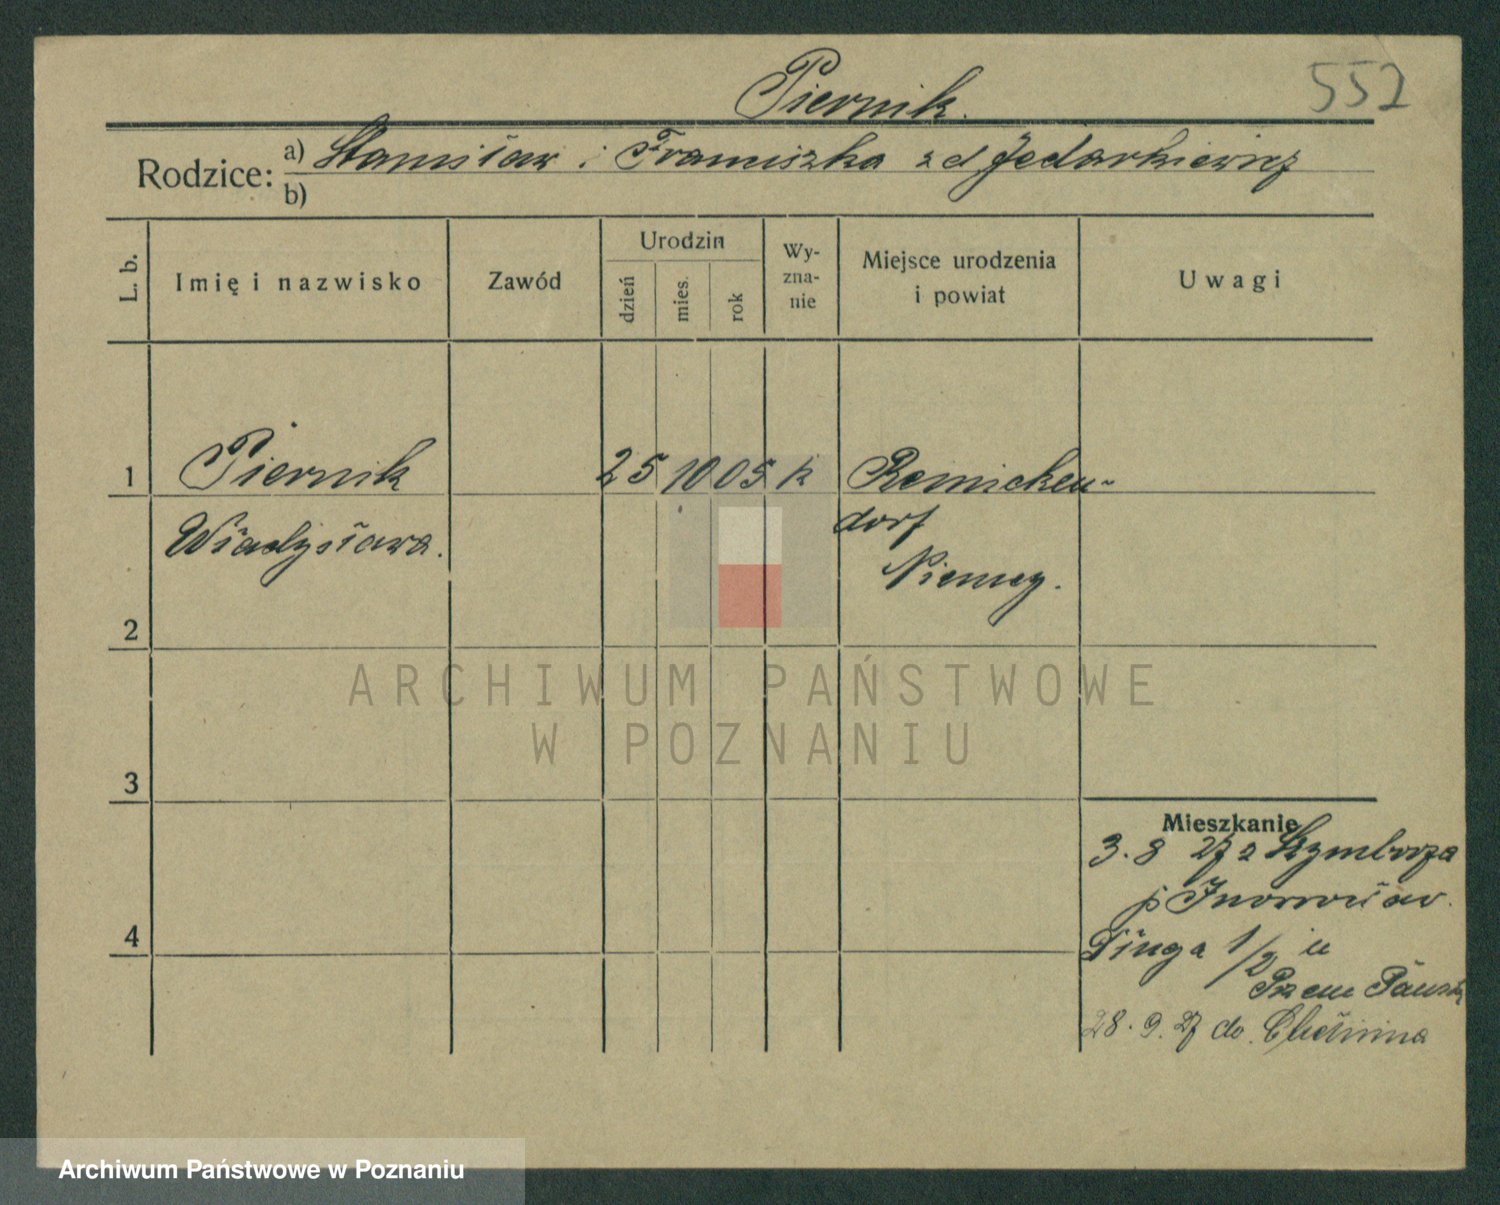 Piernik.
552
Rodzice: a) Stanisław i Franciszka z d Jedarkiewicz
b)
L. b. Imię i nazwisko Zawód Urodzin dzień mies. rok Wy-zna-nie Miejsce urodzenia i powiat Uwagi
1 Piernik 25 10 05 k Reinicken-
Władysława. dorf
Niemcy.
2
3
Mieszkanie
3.8 27 z Szymborza
p Inowrocław.
4
Długa 1/2 u
28.9.27 do Chełmna
ARCHIWUM PAŃSTWOWE
W POZNANIU
Archiwum Państwowe w Poznaniu